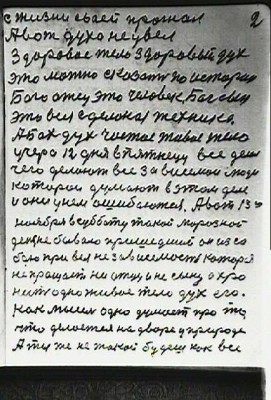 2
с жизни своей прогнал
А вот духо не увел
Здоровое тело Здоровый дух
это можно сказать по истории
Бог отец это человек, Бог сын
это всё сделала техника.
А Бог дух чистое живое тело
учера 12 дня в пятницу все дела
чего делают все зависимой люди
которой думают в этом деле
и они у нем ошибаются. А вот 13го
ноября в субботу такой морозной
день не бывало пришедший он из со
бою при вел не зависимость которя
не прощает ни отцу и не сыну а хро
нить одно живое тело дух его.
Как мысль одно думает про то,
что делается на дворе у природе
А ты же не такой будеш как все